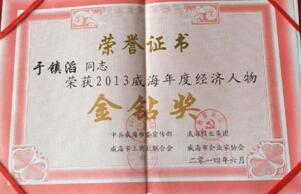 荣誉证书
于镇滔 同志
荣获2013威海年度经济人物
金钻奖
中共威海市委宣传部 威海报业集团
威海市工商业联合会 威海市企业家协会
二〇一四年六月